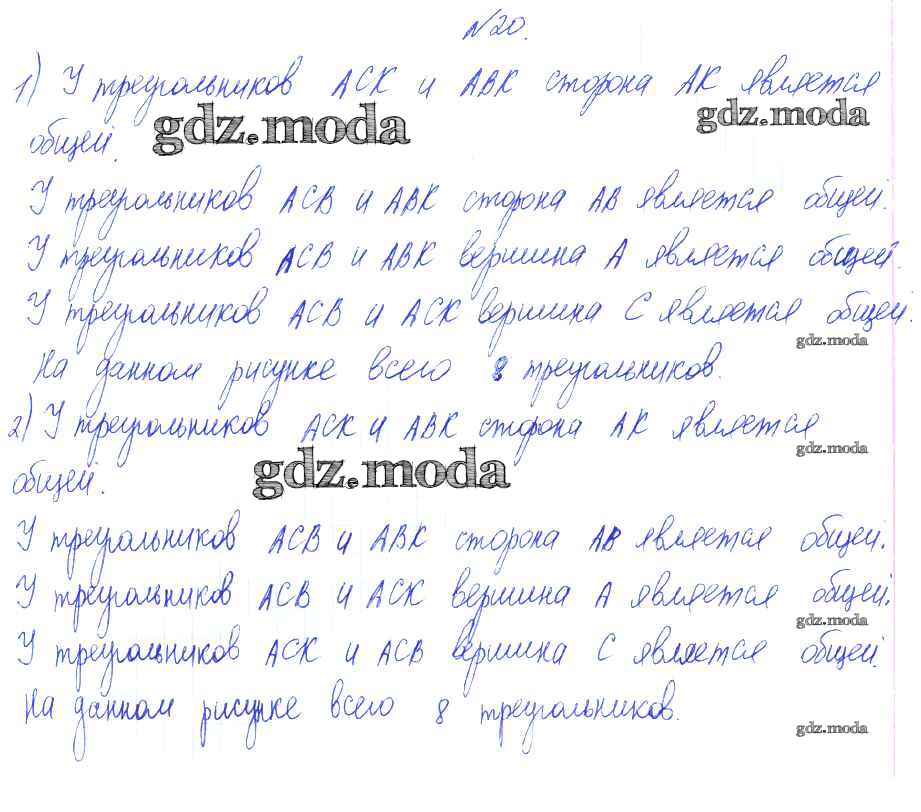 №20.
1) У треугольников АСК и АВК сторона АК является
общей.
gdz.moda
gdz.moda
У треугольников АСВ и АВК сторона АВ является общей.
У треугольников АСВ и АВК вершина А является общей.
У треугольников АСВ и АСК вершина С является общей.
gdz.moda
На данном рисунке всего 8 треугольников.
2) У треугольников АСК и АВК сторона АК является
gdz.moda
общей.
gdz.moda
У треугольников АСВ и АВК сторона АВ является общей.
У треугольников АСВ и АСК вершина А является общей.
gdz.moda
У треугольников АСК и АСВ вершина С является общей.
На данном рисунке всего 8 треугольников.
gdz.moda